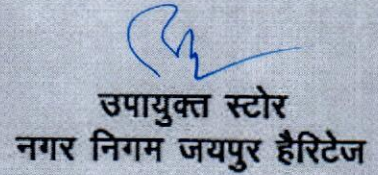 उपायुक्त स्टोर
नगर निगम जयपुर हैरिटेज